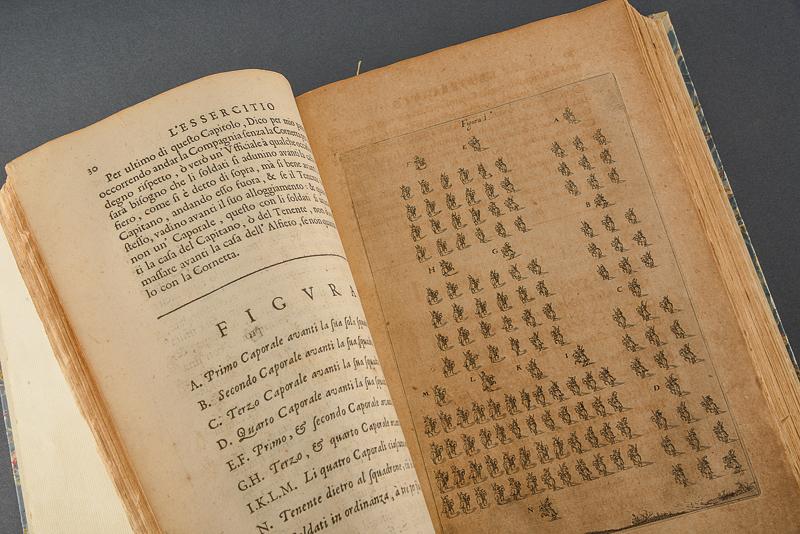 30
L'ESSERCITIO
Per ultimo di questo Capitolo, Dico per mio
occorrendo andar la Compagnia senza la Cornetta
degno rispetto, ò verò un' Vfficiale à qualche
sarà bisogno che li soldati si adunino avanti la
fiero, come si è detto di sopra, mà si bene
Capitano, andando esso fuora, & se il Tenente
stesso, vadino avanti il suo alloggiamento: &
non un' Caporale, questo con li soldati
ti la casa del Capitano, ò del Tenente, non
massare avanti la casa dell' Alfiero, se non
lo con la Cornetta.
FIGVRA
A. Primo Caporale avanti la sua sola
B. Secondo Caporale avanti la sua
C. Terzo Caporale avanti la sua
D. Quarto Caporale avanti la sua
E.F. Primo, & secondo Caporale
G.H. Terzo, & quarto Caporale
I.K.L.M. Li quatro Caporali
N. Tenente dietro al squadrone,
Soldati in ordinanza, a tre
Figura 1.a
A
E
B
G
H
C
I
K
L
M
D
N